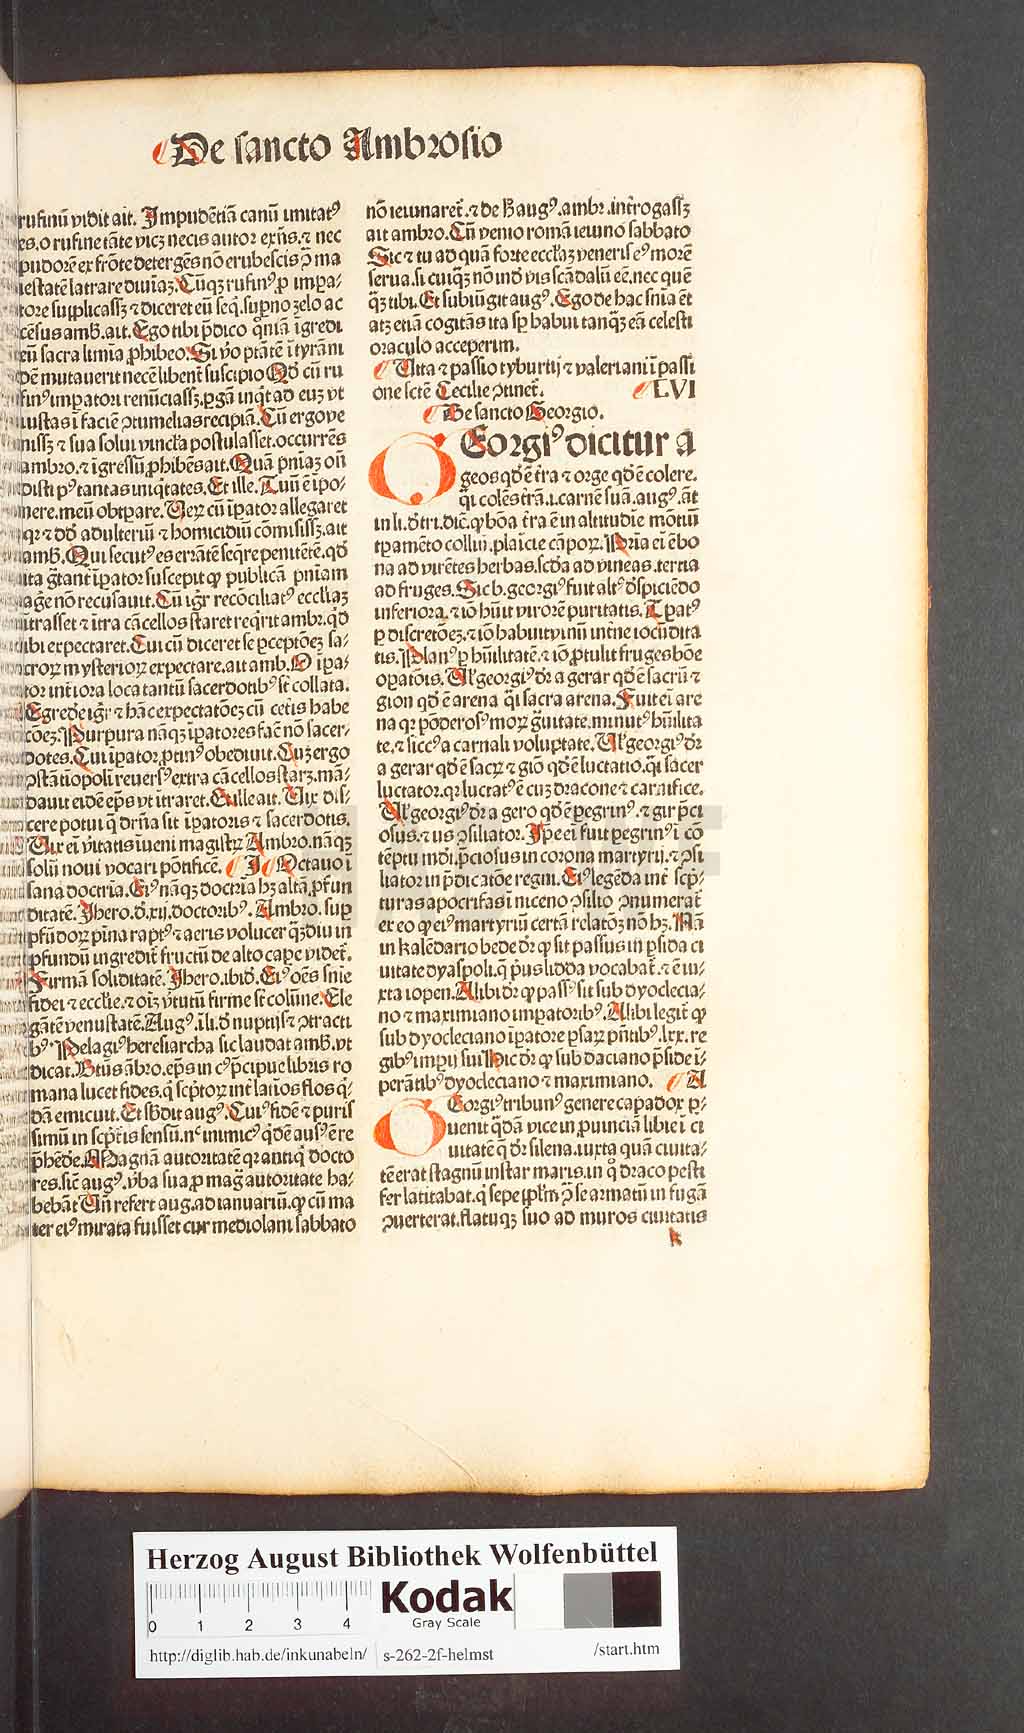 De sancto Ambrosio
rufinū vidit ait. Impudētiā canū imitatꝰ
es. o rufine tāte vicꝫ necis autor exn̄s. ⁊ nec
pudorē ex frōte detergēs nō erubescis ꝯ̄ ma
iestatē latrare diuinaꝫ. Cūqꝫ rufinꝰ ꝓ impa-
tore supplicassꝫ ⁊ diceret eū seq̄. supno ꝫelo ac
cēsus amb. ait. Ego tibi p̄dico qm̄ iā īgredi
eū sacra limia ꝓhibeo. Si v̄o ptātē ī tyrāni
dē mutauerit necē libent̄ suscipio Qd̓ cū ru
finꝰ impatori renūciassꝫ. pgā inq̄t ad euꝫ vt
iustas ī faciē ꝯtumelias recipiā. Cū ergo ve
nissꝫ ⁊ sua solui vincĺa postulasset. occurrēs
ambro. ⁊ īgressū ꝓhibēs ait. Quā pniaꝫ on̄
disti pꝰ tantas iniq̄tates. Et ille. Tuū ē īpo-
nere. meū obtꝑare. Veꝝ cū īpator allegaret
qꝛ ⁊ dd̓ adulteriū ⁊ homicidiū cōmisissꝫ. ait
amb. Qui secutꝰ es errātē seq̄re penitētē. qd̓
ita ḡtant īpator suscepit ꝙ publicā pniam
aḡe nō recusauit. Cū igr̄ recōciliatꝰ eccĺiaꝫ
ītrasset ⁊ ītra cācellos staret req̄rit ambr. qd̓
ibi expectaret. Cui cū diceret se ꝑceptōeꝫ sa-
croꝝ mysterioꝝ expectare. ait amb. O īpa-
tor int̄iora loca tantū sacerdotibꝰ st̄ collata.
Egrede igr̄ ⁊ hāc expectatōeꝫ cū cet̄is habe
cōeꝫ. Purpura nāqꝫ īpatores fac̄ nō sacer-
dotes. Cui īpator. ptinꝰ obediuit. Cuꝫ ergo
ꝯstātīopoli reuersꝰ extra cācellos starꝫ. mā-
dauit eidē ep̄s vt ītraret. Et ille ait. Vix dis-
cere potui q̄ dr̄na sit īpatoris ⁊ sacerdotis.
Vix ei vitatis iueni magistꝝ Ambro. nāqꝫ
solū noui vocari pōtificē. Octauo ī
sana doctria. Eiꝰ nāqꝫ doctria hꝫ altā. p̄fun
ditatē. Jhero. d̓. xij. doctoribꝰ. Ambro. sup
pfūdoꝝ pīna raptꝰ ⁊ aeris volucer qꝫdiu in
pfundū ingredit̄ fructū de alto cape videt̄.
Firmā soliditatē. Jhero. ibid̓. Eiꝰ oēs snie
fidei ⁊ eccĺie. ⁊ oīꝫ v̓tutū firme st̄ colūne. Ele
gātē venustatē. Augꝰ. ī li. d̓ nuptijs ⁊ ꝯtracti
bꝰ. Pelagiꝰ heresiarcha sic laudat amb. vt
dicat. Btūs ābro. ep̄s in cꝰ p̄cipue libris ro
mana lucet fides. q̄ sc̄ptoꝝ int̄ latīos flos q̄-
dā emicuit. Et sb̓dit augꝰ. Cuiꝰ fidē ⁊ puris
simū in sc̄pt̄is sensū. nͨ inimicꝰ q̄dē ausꝰ ē re
p̄hēde. Magnā autoritatē qꝛ antiq̄ docto
res. sic̄ augꝰ. v̓ba sua ꝓ mag̃ autoritate ha-
bebāt Vn̄ refert aug. ad ianuariū. ꝙ cū ma
ter eiꝰ mirata fuisset cur mediolani sabbato
nō ieiunaret̄. ⁊ de h̓ augꝰ. ambr. int̄rogassꝫ
ait ambro. Cū venio romā ieiuno sabbato
Sic ⁊ tu ad quā forte eccĺiaꝫ veneris eꝰ morē
serua. si cuiqꝫ nō īnd̓ vis scādalū eē. nec quē
qꝫ tibi. Et subiūgit augꝰ. Ego de hac snia ēt
atꝫ etiā cogitās ita sp̄ habui tanqꝫ eā celesti
oraculo acceperim.
Uita ⁊ passio tyburtij ⁊ valeriani ī passi
one scte Cecilie ꝯtinet̄. LVI
De sancto Georgio.
GEorgiꝰ dicitur a
geos qd̓ ē t̄ra ⁊ orge qd̓ ē colere.
q̄i colēs t̄rā. i. carnē suā. augꝰ. āt
in li. d̓ tri. dic̄. ꝙ bōa t̄ra ē in altitudīe mōtiū
tꝑamēto colliū. plaīcie cāpoꝝ. Pria ei ē bo
na ad virētes herbas. scd̓a ad vineas. tertia
ad fruges. Sic b. georgiꝰ fuit altꝰ d̓spiciēdo
inferiora. ⁊ iō hūit virorē puritatis. Tꝑatꝰ
p discretōeꝫ. ⁊ iō habuit vinū int̄ne iocūdita
tis. Planꝰ p hūilitatē. ⁊ iō ꝓtulit fruges bōe
opatōis. Ul̓ georgiꝰ dr̄ a gerar qd̓ ē sacrū ⁊
gion qd̓ ē arena q̄i sacra arena. Fuit ei are
na qꝛ pōderosꝰ moꝝ ḡuitate. minutꝰ hūilita
te. ⁊ siccꝰ a carnali voluptate. Ul̓ georgiꝰ dr̄
a gerar qd̓ ē sacꝝ ⁊ giō qd̓ ē luctatio. q̄i sacer
luctator. qꝛ luctatꝰ ē cuꝫ dracone ⁊ carnifice.
Ul̓ georgiꝰ dr̄ a gero qd̓ ē pegrinꝰ. ⁊ gir p̄ci
osus. ⁊ us ꝯsiliator. Ip̄e ei fuit pegrinꝰ ī cō
tēptu mūdi. p̄ciosus in corona martyrij. ⁊ ꝯsi
liator in p̄dicatōe regni. Eiꝰ legēda int̄ sc̄p-
turas apocrifas ī niceno ꝯsilio ꝯnumerat̄
ex eo ꝙ eiꝰ martyriū certā relatōꝫ nō hꝫ. Nā
in kalēdario bede dr̄ ꝙ sit passus in ꝑsida ci
uitate dyaspoli. q̄ p̄us lidda vocabat̄. ⁊ ē iu-
xta iopen. Alibi dr̄ ꝙ passꝰ sit sub dyoclecia-
no ⁊ maximiano impatoribꝰ. Alibi legit̄ ꝙ
sub dyocleciano īpatore ꝑsaꝝ pn̄tibꝰ. lxx. re
gibꝰ impij sui Hic dr̄ ꝙ sub daciano p̄side ī-
perātibꝰ dyocleciano ⁊ maximiano. A
GEorgiꝰ tribunꝰ genere capadox p-
uenit q̄dā vice in ꝓuinciā libie ī ci
uitatē q̄ dr̄ silena. iuxta quā ciuita-
tē erat stagnū instar maris. in q̄ draco pesti
fer latitabat. q̄ sepe pp̄l'm ꝯ̄ se armatū in fugā
ꝯuerterat. flatuqꝫ suo ad muros ciuitatis
k
Herzog August Bibliothek Wolfenbüttel
0 1 2 3 4
Kodak
Gray Scale
http://diglib.hab.de/inkunabeln/ s-262-2f-helmst /start.htm